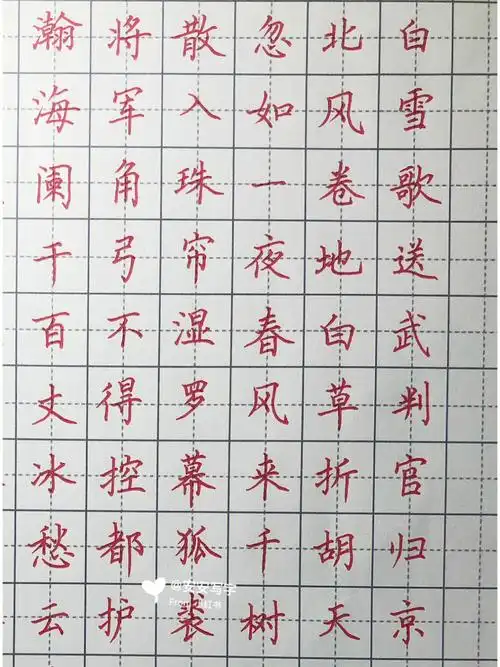 白雪歌送武判官归京
北风卷地白草折胡天
忽如一夜春风来千树
散入珠帘湿罗幕狐裘
将军角弓不得控都护
瀚海阑干百丈冰愁云
@安安写字
From 小红书